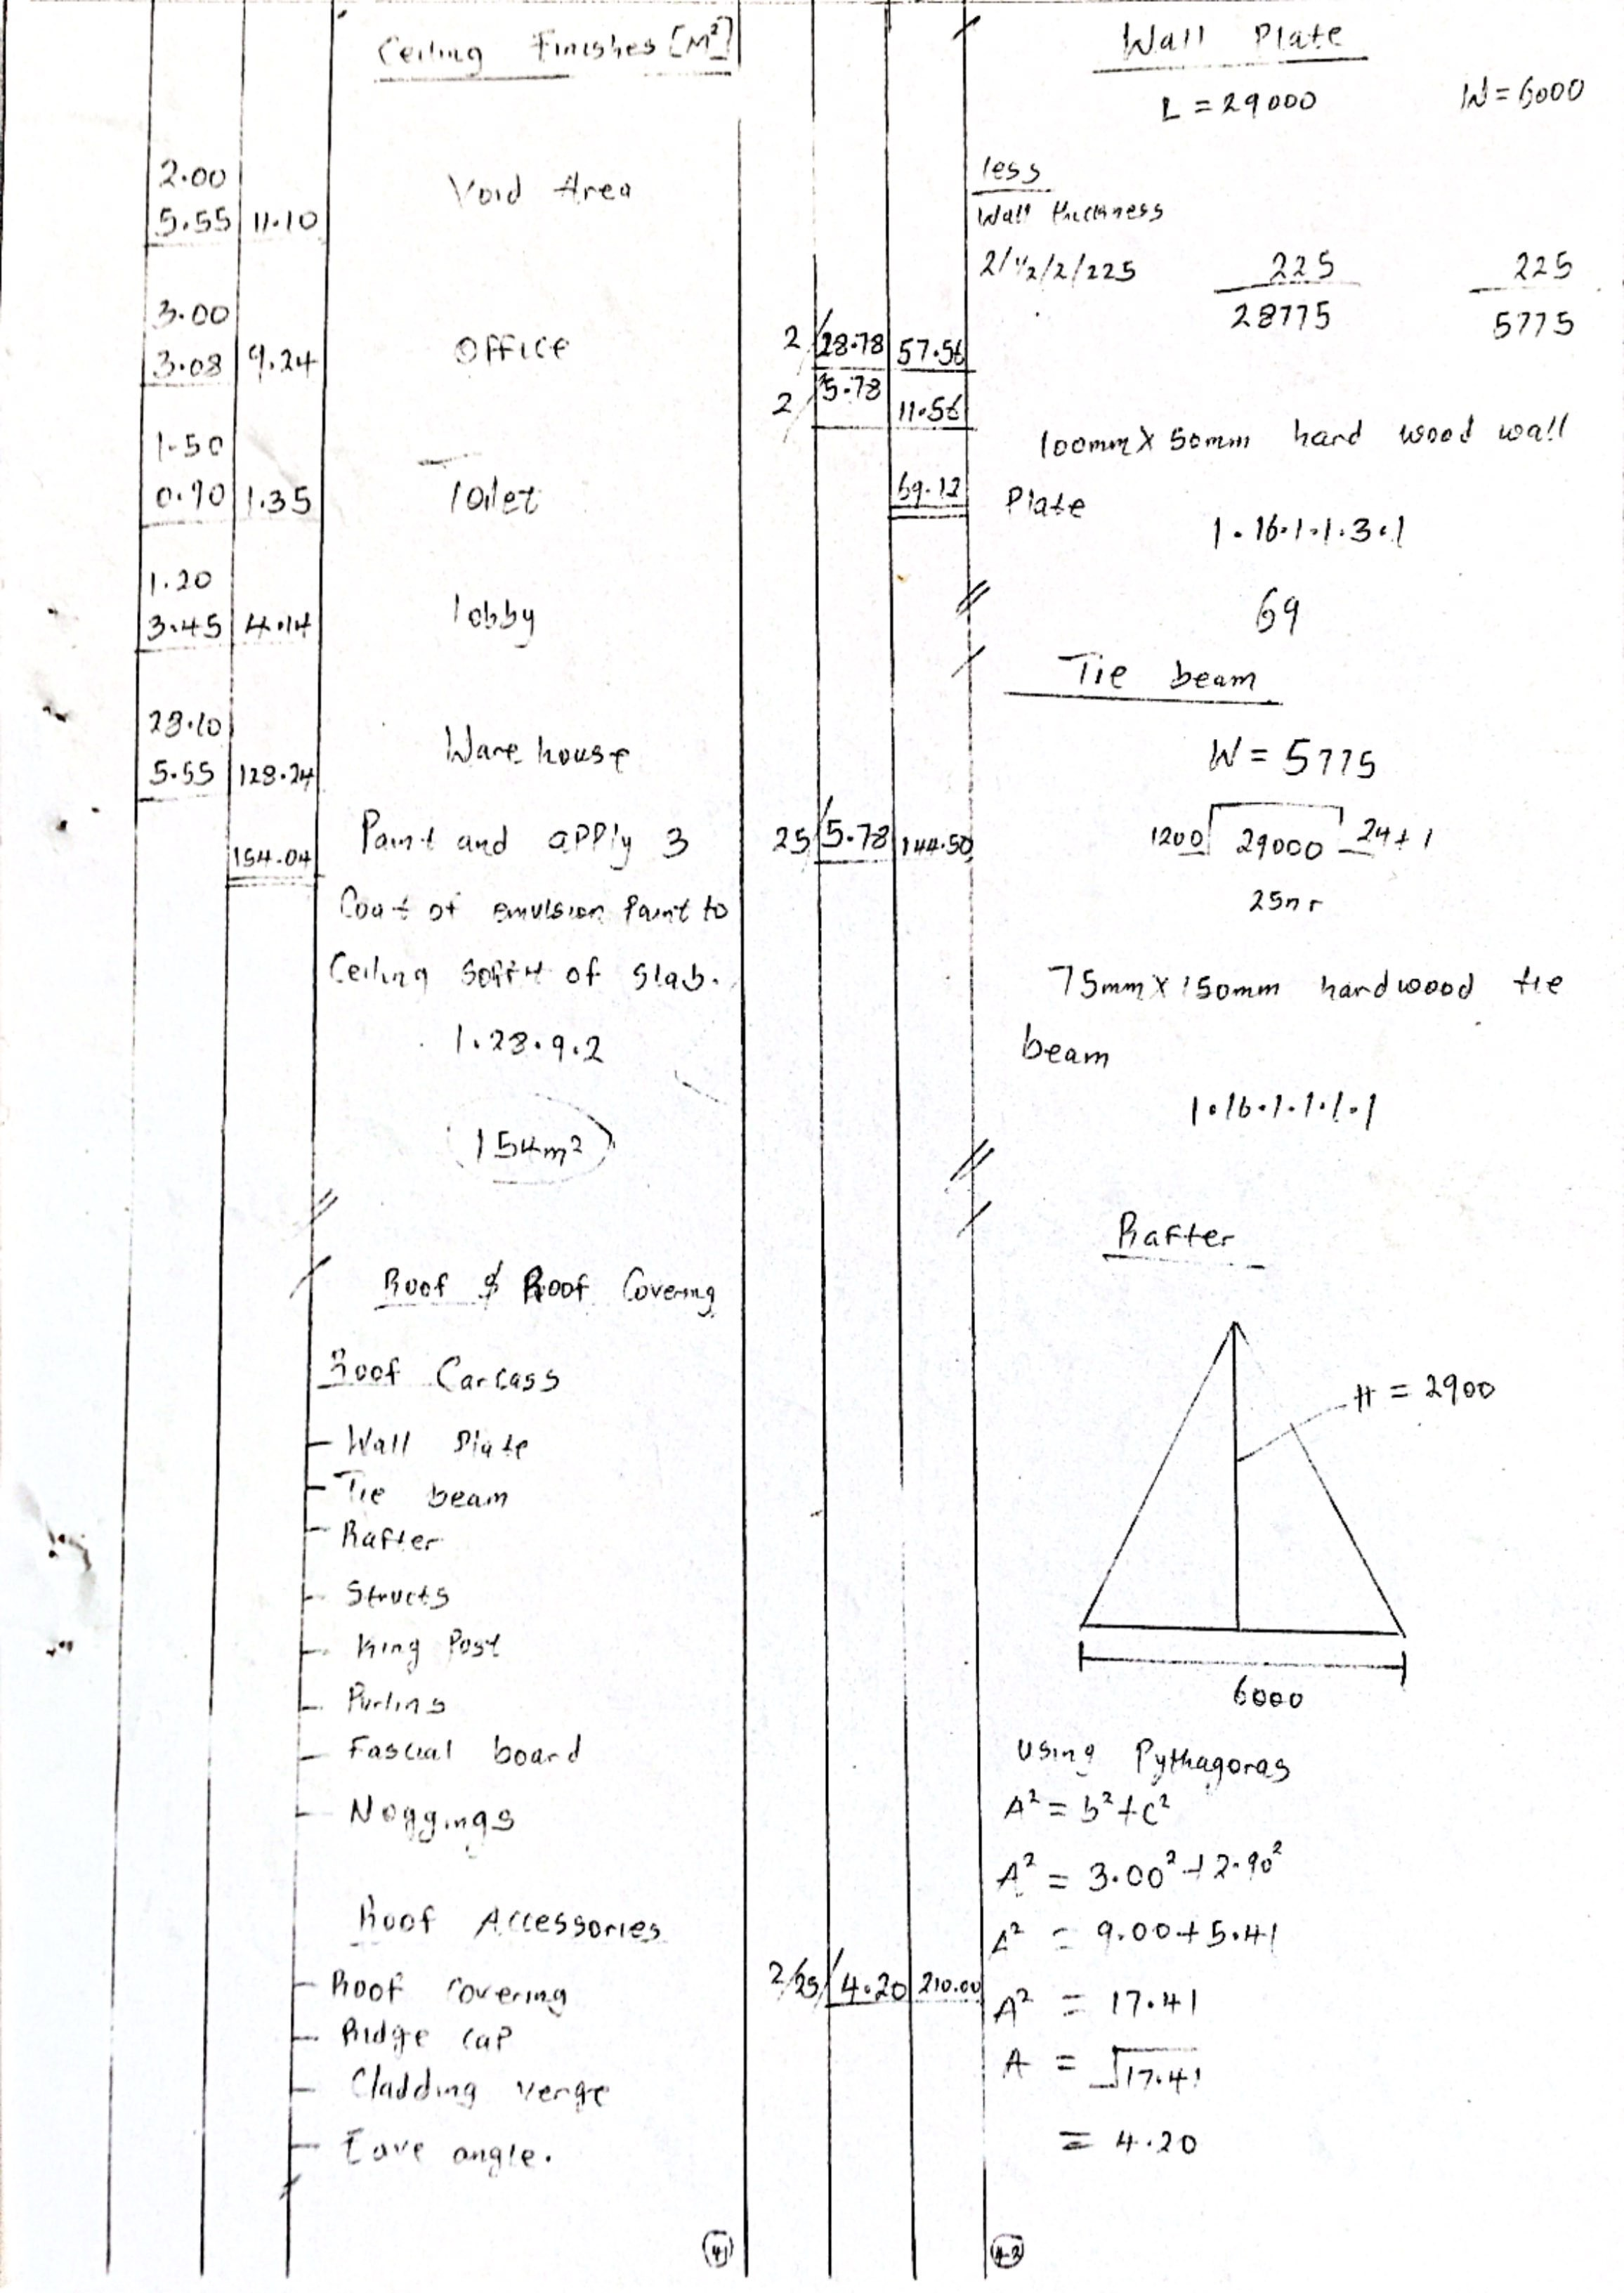 Ceiling Finishes [M²]
2.00
5.55 11.10
Void Area
3.00
3.08 9.24
Office
1.50
0.90 1.35
Toilet
1.20
3.45 4.14
lobby
23.10
5.55 128.24
Ware house
154.04
Paint and apply 3
Coat of emulsion Paint to
Ceiling soffit of slab.
1.28.9.2
154m²
Roof & Roof Covering
Roof Carcass
- Wall Plate
- Tie beam
- Rafter
- Structs
- King Post
- Purlins
- Fascial board
- Noggings
Roof Accessories
- Roof Covering
- Ridge CaP
- Cladding verge
- Eave angle.
41
Wall Plate
L = 29000 W = 6000
less
Wall thickness
2/½/2/225 225 225
28775 5775
2/ 28.78 57.56
2/ 5.78 11.56
69.12
100mm X 50mm hard wood wall
Plate
1.16.1.1.3.1
69
Tie beam
W = 5775
1200 29000 24 + 1
25nr
25/ 5.78 144.50
75mm X 150mm hardwood tie
beam
1.16.1.1.1.1
Rafter
H = 2900
6000
Using Pythagoras
A² = b² + c²
A² = 3.00² + 2.90²
A² = 9.00 + 5.41
2/25/ 4.20 210.00
A² = 17.41
A = √17.41
= 4.20
42